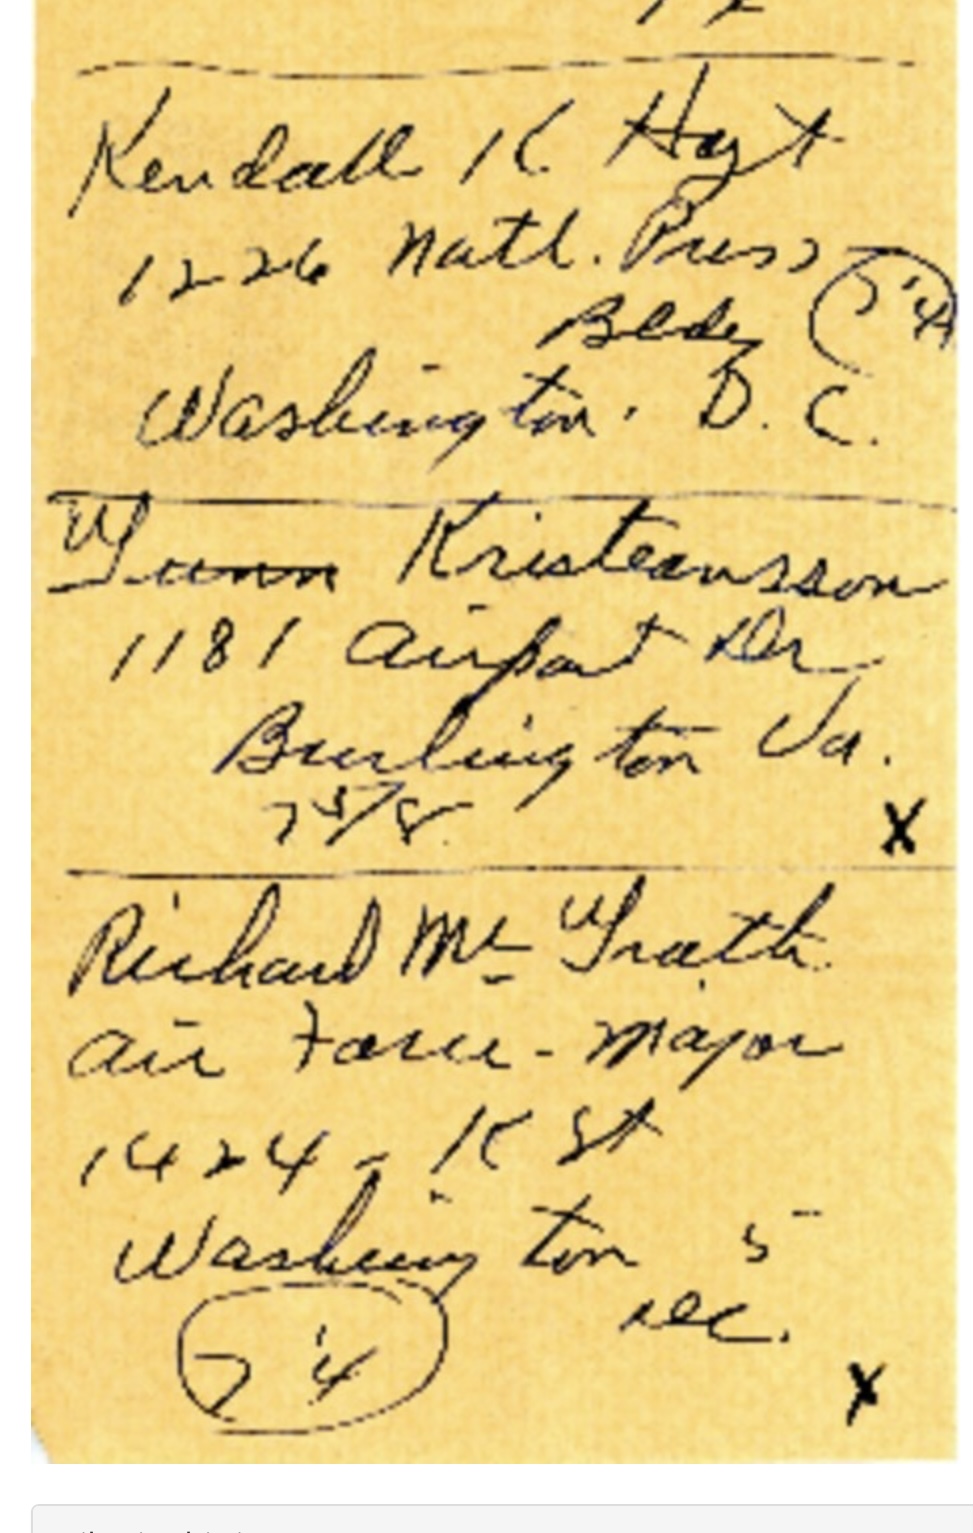 Kendall K. Hoyt
1226 Natl. Press
Bldg 7 1/4
Washington. D. C.
Gunn Kristeansson
1181 Airport Dr
Burlington Va.
7 5/8
X
Richard Mc Grath
Air Force - Major
1424 - K St
Washington 5
D.C.
7 1/4
X